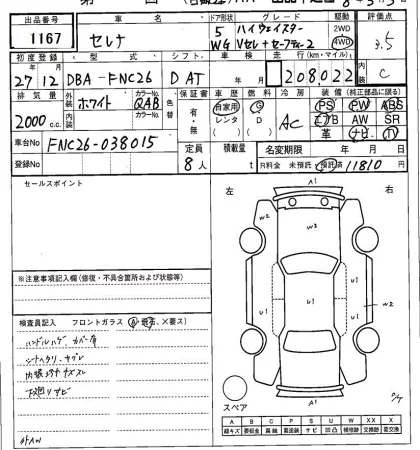 出品番号 車名 ドア形状 グレード 駆動 評価点
1167 セレナ 5 ハイウェイスター 2WD 3.5
WG Vセレ+セーフティー2 4WD
初度登録 型式 シフト 車検 走行(km・マイル) 内装
27年12月 DBA-FNC26 D AT 年 月 208,022 C
排気量 外装 カラーNo. 色替 保証書 車歴 燃料 冷房 装備(純正部品に限る)
2000c.c. ホワイト QAB 有・無 自家用 G AC PS PW ABS
内装 カラーNo. レンタ D エアB AW SR
革 ナビ TV
車台No FNC26-038015 定員 積載量 名変期限 年 月 日
登録No 8人 R料金 未預託 預託済 11810円
セールスポイント
左 右
A1
W2 W2
U1 U1 U1 W2
A1
※注意事項記入欄(修復・不具合箇所および状態等)
検査員記入 フロントガラス(A・飛石、×要ス)
ハンドルハゲ カバー有
シートスリ・ヤブレ
内張キズ
下廻りサビ
外AW
スペア
A B C P S U W X XX
線キズ 要板金 腐蝕 要塗装 サビ 凹凸 補修跡 交換跡 要交換